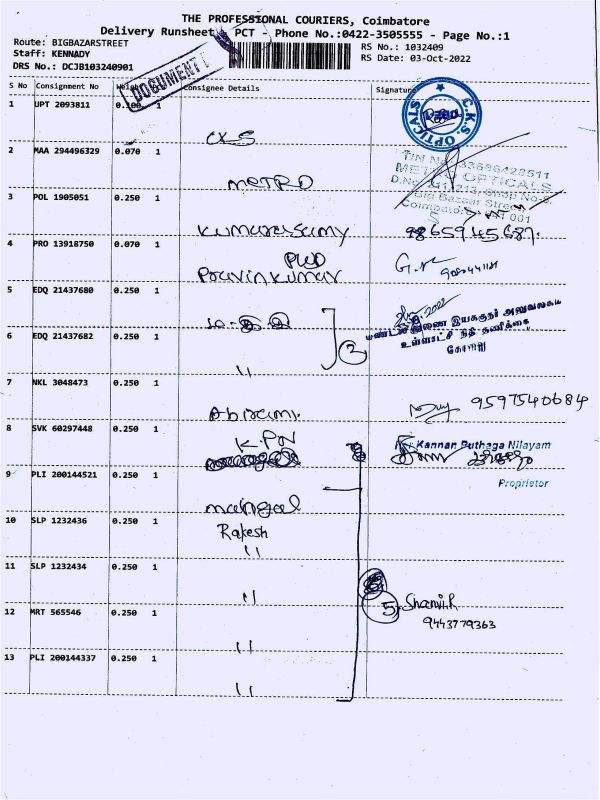 THE PROFESSIONAL COURIERS, Coimbatore
Delivery Runsheet - PCT - Phone No.:0422-3505555 - Page No.:1
Route: BIGBAZARSTREET
RS No.: 1032409
Staff: KENNADY
RS Date: 03-Oct-2022
DRS No.: DCJB103240901
DOCUMENT
S No Consignment No Weight Consignee Details Signature
1 UPT 2093811 0.100 1
CKS
C.K.S. OPTICALS
2 MAA 294496329 0.070 1
METRO
TIN No. 33686428511
METRO OPTICALS
Big Bazaar Street
Coimbatore 001
3 POL 1905051 0.250 1
Kumarasamy 9865945687.
4 PRO 13918750 0.070 1
PWD
Pravinkumar
5 EDQ 21437680 0.250 1
மண்டல இணை இயக்குநர் அலுவலகம்
உள்ளாட்சி நிதி தணிக்கை
கோவை
6 EDQ 21437682 0.250 1
2
"
7 NKL 3048473 0.250 1
Abirami. 9597540684
8 SVK 60297448 0.250 1
K.PN
Kannan Puthaga Nilayam
Proprietor
9 PLI 200144521 0.250 1
mangal
10 SLP 1232436 0.250 1
Rakesh
"
11 SLP 1232434 0.250 1
"
5 Shanvi.R
9443779363
12 MRT 565546 0.250 1
"
13 PLI 200144337 0.250 1
"